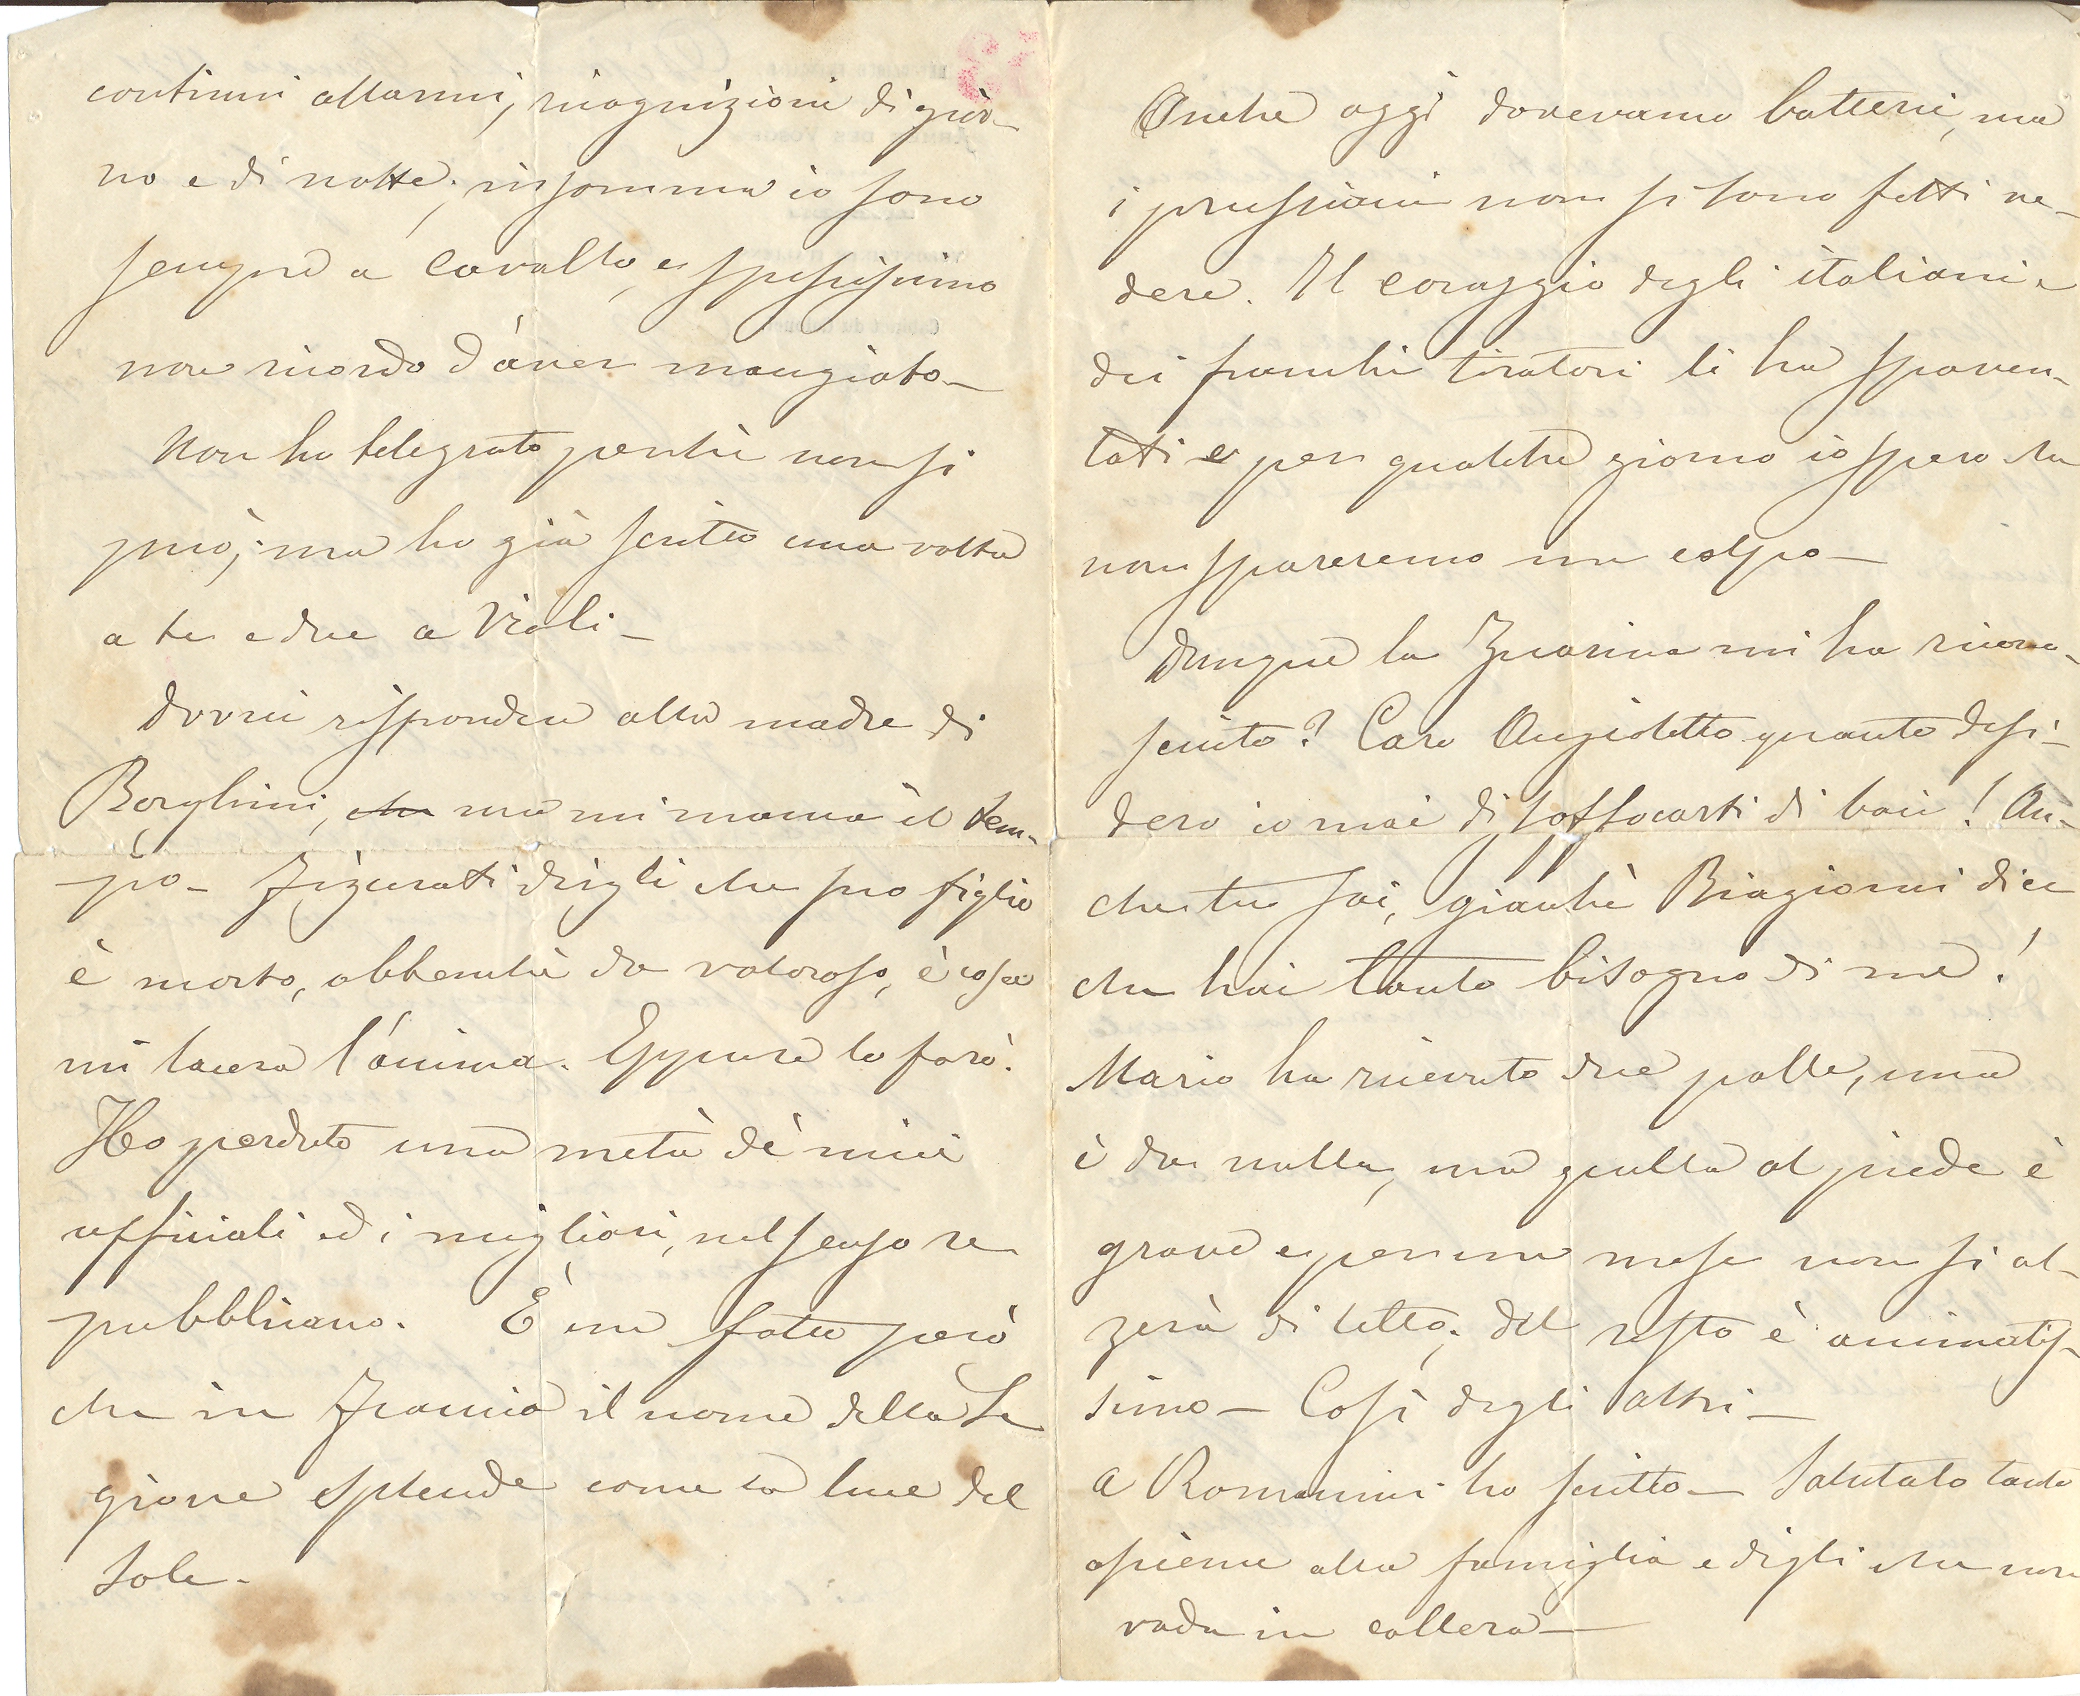 continui allarmi, ricognizioni di gior-
no e di notte; insomma io sono
sempre a cavallo, e spessissimo
non ricordo d'aver mangiato—
Non ho telegrato perchè non si
può; ma ho già scritto una volta
a te e due a Violi—
Dovrei rispondere alla madre di
Borghini, che ma mi manca il tem-
po— Figurati dirgli che suo figlio
è morto, abbenchè da valoroso, è cosa
mi lacera l'anima. Eppure lo farò.
Ho perduto una metà de' miei
ufficiali ed i migliori, nel senso re
pubblicano. È un fatto però
che in Francia il nome della Le
gione splende come la luce del
sole—
Anche oggi dovevamo batterci, ma
i prussiani non si sono fatti ve-
dere. Il coraggio degli italiani e
dei franchi tiratori li ha spaven-
tati e per qualche giorno io spero che
non spareremo un colpo—
Dunque la mi ha ricono-
sciuto? Caro Angioletto quanto desi-
dero io mai di soffocarti di baci! An-
che tu sai, giacchè Biagioni dice
che hai tanto bisogno di me!
Mario ha ricevuto due palle, una
è da nulla, ma quella al piede è
grave e per un mese non si al-
zerà di letto; del resto è animatis-
simo— Così degli altri—
A ho scritto— Salutalo tanto
assieme alla famiglia e digli che non
vada in collera—